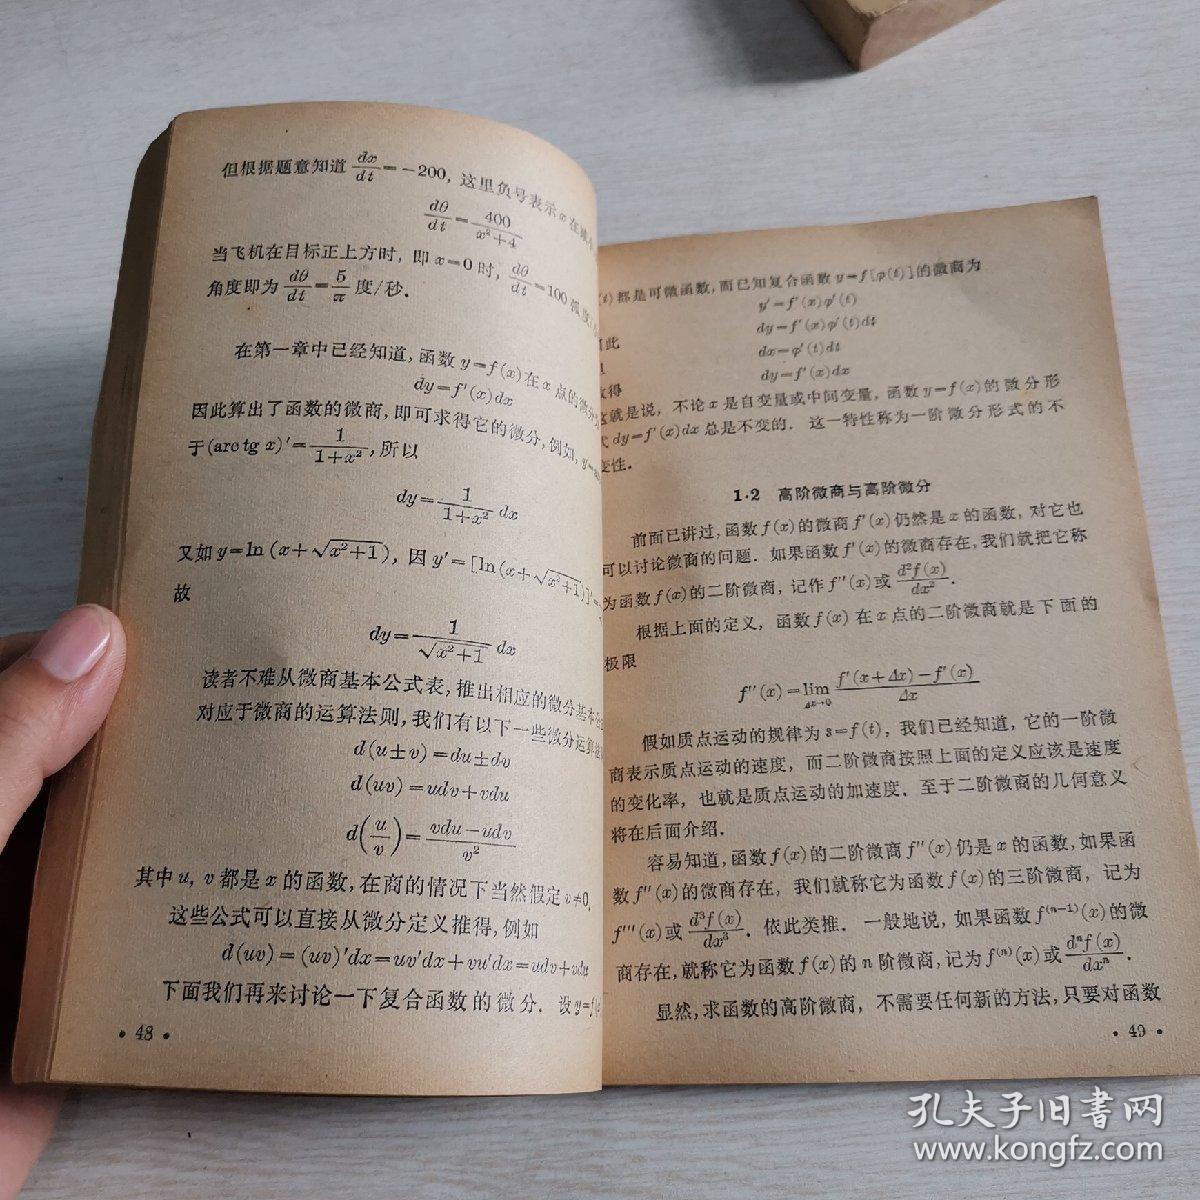 但根据题意知道 dx/dt=-200, 这里负号表示 x 在
dθ/dt=400/(x²+4)
当飞机在目标正上方时, 即 x=0 时, dθ/dt=100 弧度/
角度即为 dθ/dt=5/π 度/秒.
在第一章中已经知道, 函数 y=f(x) 在 x 点的微分
dy=f′(x)dx
因此算出了函数的微商, 即可求得它的微分, 例如, y=
于(arc tg x)′=1/(1+x²), 所以
dy=1/(1+x²) dx
又如 y=ln (x+√(x²+1)), 因 y′=[ln(x+√(x²+1))]′=
故
dy=1/√(x²+1) dx
读者不难从微商基本公式表, 推出相应的微分基本
对应于微商的运算法则, 我们有以下一些微分运算法
d(u±v)=du±dv
d(uv)=udv+vdu
d(u/v)=(vdu-udv)/v²
其中 u, v 都是 x 的函数, 在商的情况下当然假定 v≠0.
这些公式可以直接从微分定义推得, 例如
d(uv)=(uv)′dx=uv′dx+vu′dx=udv+vdu
下面我们再来讨论一下复合函数的微分. 设 y=f(
• 48 •
(t) 都是可微函数, 而已知复合函数 y=f[φ(t)] 的微商为
y′=f′(x)φ′(t)
此
dy=f′(x)φ′(t)dt
dx=φ′(t)dt
得
dy=f′(x)dx
这就是说, 不论 x 是自变量或中间变量, 函数 y=f(x) 的微分形
式 dy=f′(x)dx 总是不变的. 这一特性称为一阶微分形式的不
变性.
1·2 高阶微商与高阶微分
前面已讲过, 函数 f(x) 的微商 f′(x) 仍然是 x 的函数, 对它也
可以讨论微商的问题. 如果函数 f′(x) 的微商存在, 我们就把它称
为函数 f(x) 的二阶微商, 记作 f″(x) 或 d²f(x)/dx².
根据上面的定义, 函数 f(x) 在 x 点的二阶微商就是下面的
极限
f″(x)=lim Δx→0 (f′(x+Δx)-f′(x))/Δx
假如质点运动的规律为 s=f(t), 我们已经知道, 它的一阶微
商表示质点运动的速度, 而二阶微商按照上面的定义应该是速度
的变化率, 也就是质点运动的加速度. 至于二阶微商的几何意义
将在后面介绍.
容易知道, 函数 f(x) 的二阶微商 f″(x) 仍是 x 的函数, 如果函
数 f″(x) 的微商存在, 我们就称它为函数 f(x) 的三阶微商, 记为
f‴(x) 或 d³f(x)/dx³. 依此类推. 一般地说, 如果函数 f⁽ⁿ⁻¹⁾(x) 的微
商存在, 就称它为函数 f(x) 的 n 阶微商, 记为 f⁽ⁿ⁾(x) 或 dⁿf(x)/dxⁿ.
显然, 求函数的高阶微商, 不需要任何新的方法, 只要对函数
• 49 •
孔夫子旧书网
www.kongfz.com